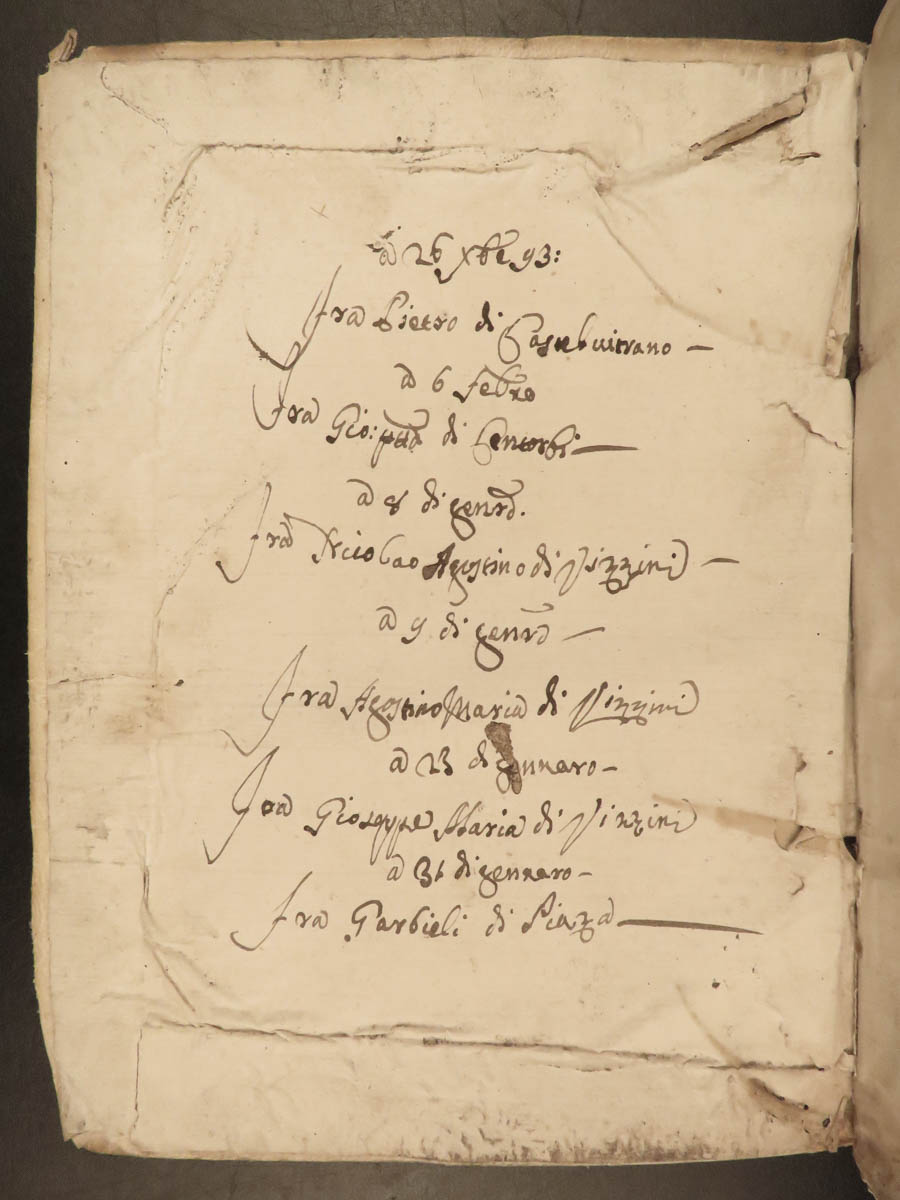 a 26 Xbre 93:
fra Pietro di Castelvitrano –
a 6 febro
fra Gio: ptta di Centorbi –
a 8 di genro.
fra Nciolao Agostino di Vizzini –
a 9 di genro –
fra Agostino Maria di Vizzini
a 23 di gennaro –
fra Gioseppe Maria di Vizzini
a 31 di gennaro –
fra Garbieli di Piaza –